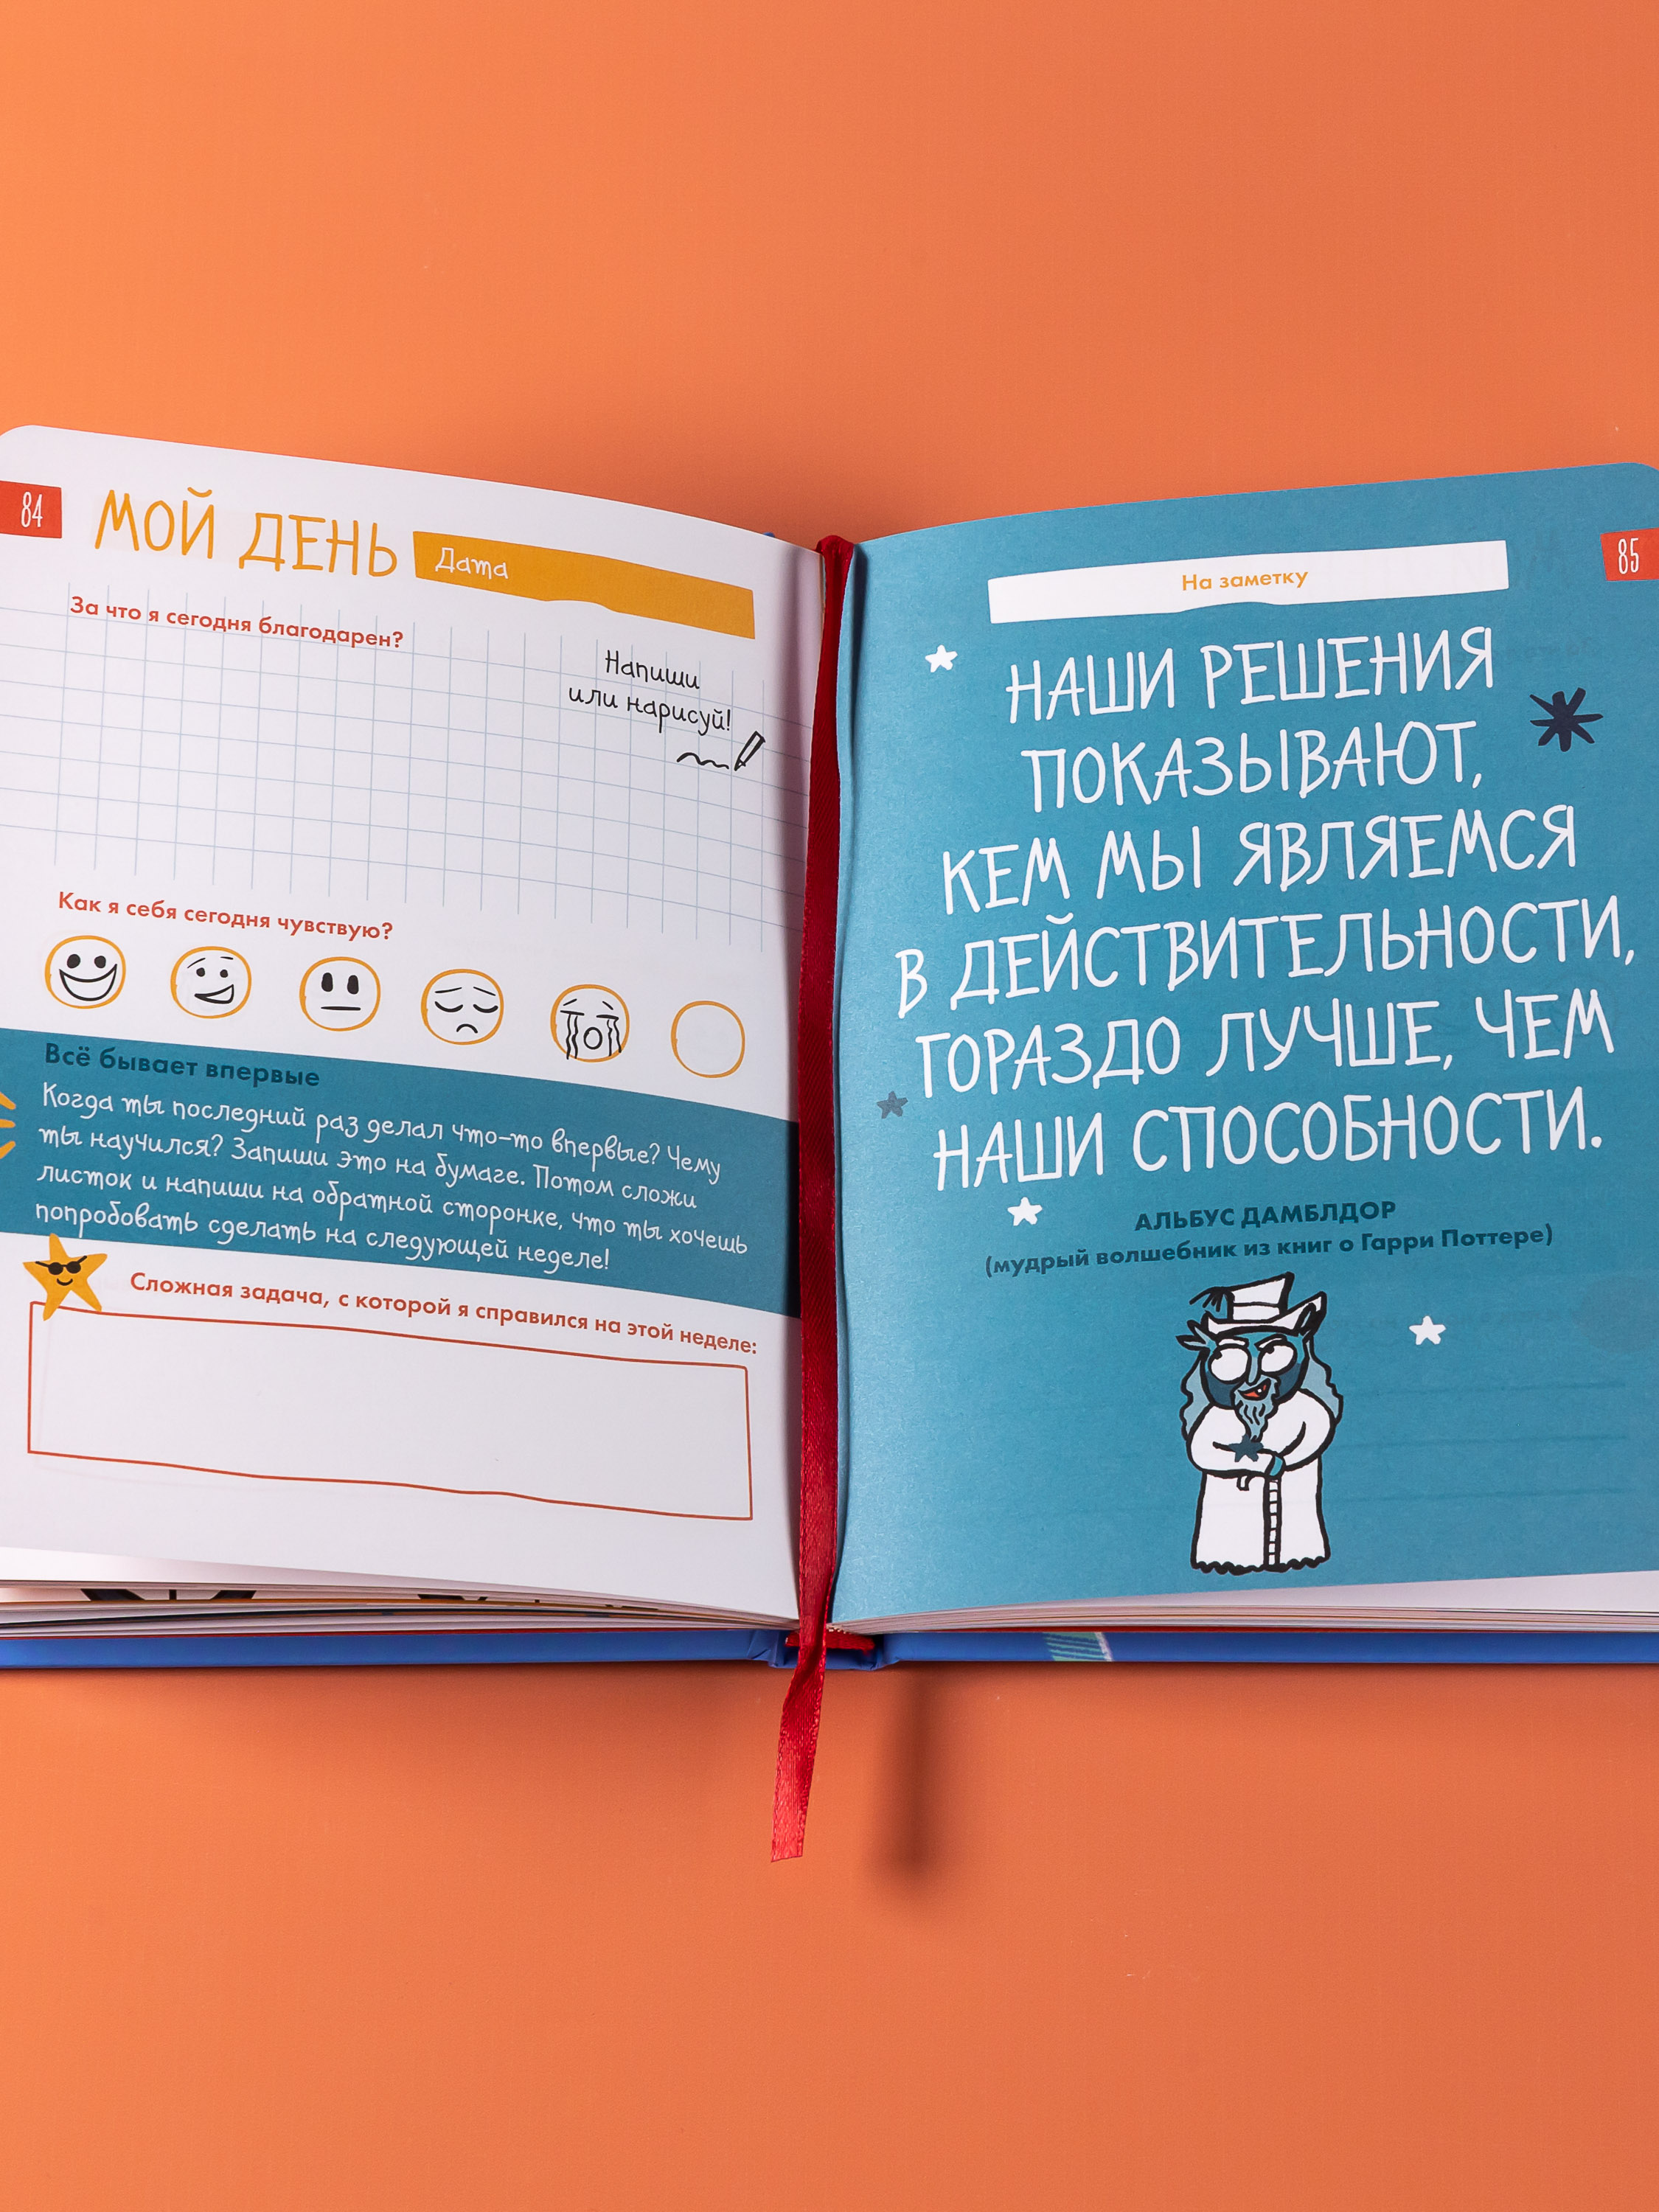 84
МОЙ ДЕНЬ
Дата
За что я сегодня благодарен?
Напиши
или нарисуй!
Как я себя сегодня чувствую?
Всё бывает впервые
Когда ты последний раз делал что-то впервые? Чему
ты научился? Запиши это на бумаге. Потом сложи
листок и напиши на обратной сторонке, что ты хочешь
попробовать сделать на следующей неделе!
Сложная задача, с которой я справился на этой неделе:
85
На заметку
НАШИ РЕШЕНИЯ
ПОКАЗЫВАЮТ,
КЕМ МЫ ЯВЛЯЕМСЯ
В ДЕЙСТВИТЕЛЬНОСТИ,
ГОРАЗДО ЛУЧШЕ, ЧЕМ
НАШИ СПОСОБНОСТИ.
АЛЬБУС ДАМБЛДОР
(мудрый волшебник из книг о Гарри Поттере)